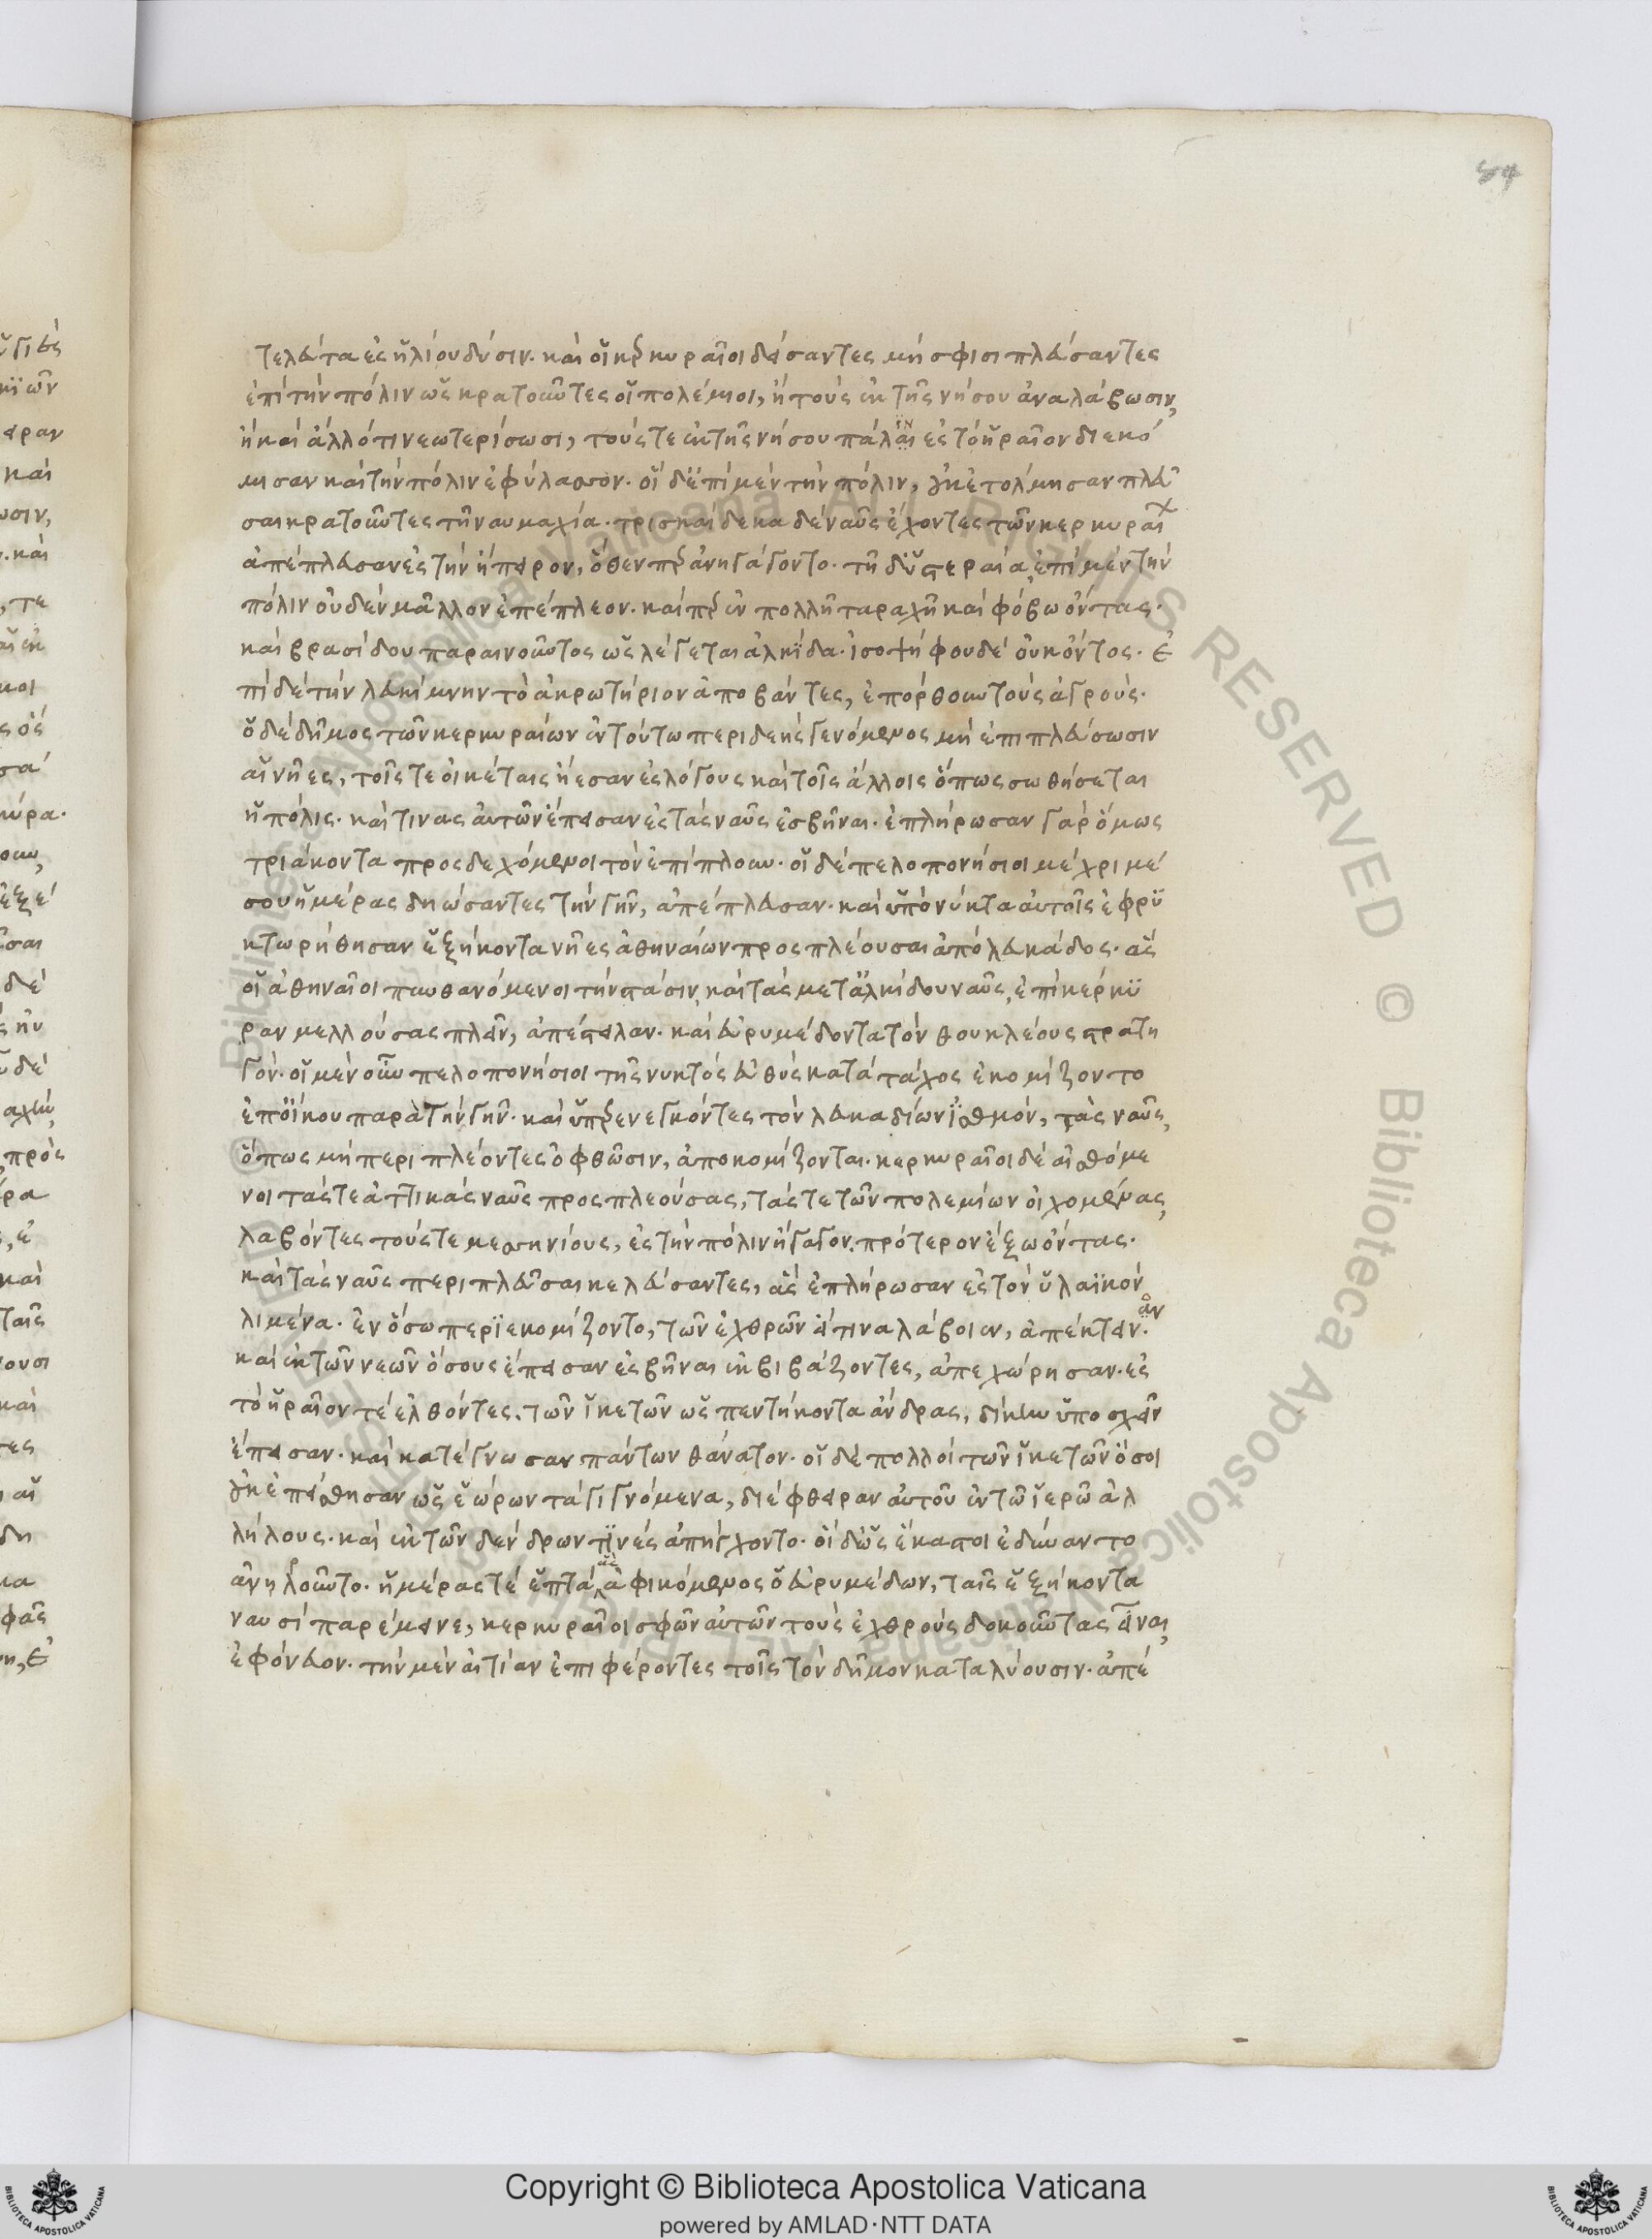 τελευτα ἐς ἡλίου δύσιν. καὶ οἱ κερκυραῖοι δείσαντες μὴ σφίσι πλεύσαντες
ἐπὶ τὴν πόλιν ὡς κρατοῦντες οἱ πολέμιοι, ἢ τοὺς ἐκ τῆς νήσου ἀναλάβωσιν,
ἢ καὶ ἄλλό τι νεωτερίσωσι, τούς τε ἐκ τῆς νήσου πάλιν ἐς τὸ ἡραῖον διεκό
μησαν καὶ τὴν πόλιν ἐφύλασσον. οἱ δ' ἐπὶ μὲν τὴν πόλιν, οὐκ ἐτόλμησαν πλεῦ
σαι κρατοῦντες τῆ ναυμαχία. τρισκαίδεκα δὲ ναῦς ἔχοντες τῶν κερκυραί
ἀπέπλευσαν ἐς τὴν ἤπειρον, ὅθεν περ ἀνηγάγοντο. τῆ δ' ὑστεραία, ἐπὶ μὲν τὴν
πόλιν οὐδὲν μᾶλλον ἐπέπλεον. καίπερ ἐν πολλῆ ταραχῆ καὶ φόβω ὄντας.
καὶ βρασίδου παραινοῦντος ὡς λέγεται ἀλκίδα. ἰσοψήφου δὲ οὐκ ὄντος. ἐ
πὶ δὲ τὴν λευκίμνην τὸ ἀκρωτήριον ἀποβάντες, ἐπόρθουν τοὺς ἀγρούς.
ὁ δὲ δῆμος τῶν κερκυραίων ἐν τούτω περιδεὴς γενόμενος μὴ ἐπιπλεύσωσιν
αἱ νῆες, τοῖς τε οἰκέταις ἤεσαν ἐς λόγους καὶ τοῖς ἄλλοις ὅπως σωθήσεται
ἡ πόλις. καί τινας αὐτῶν ἔπεισαν ἐς τὰς ναῦς ἐσβῆναι. ἐπλήρωσαν γὰρ ὅμως
τριάκοντα προσδεχόμενοι τὸν ἐπίπλουν. οἱ δὲ πελοπονήσιοι μέχρι μέ
σου ἡμέρας δηώσαντες τὴν γῆν, ἀπέπλευσαν. καὶ ὑπὸ νύκτα αὐτοῖς ἐφρυ
κτωρήθησαν ἑξήκοντα νῆες ἀθηναίων προσπλέουσαι ἀπὸ λευκάδος. ἃς
οἱ ἀθηναῖοι πυνθανόμενοι τὴν στάσιν, καὶ τὰς μετ' ἀλκίδου ναῦς, ἐπὶ κέρκυ
ραν μελλούσας πλεῖν, ἀπέστειλαν. καὶ εὐρυμέδοντα τὸν θουκλέους στρατη
γόν. οἱ μὲν οὖν πελοπονήσιοι τῆς νυκτὸς εὐθὺς κατὰ τάχος ἐκομίζοντο
ἐπ' οἴκου παρὰ τὴν γῆν. καὶ ὑπερενεγκόντες τὸν λευκαδίων ἰσθμόν, τὰς ναῦς,
ὅπως μὴ περιπλέοντες ὀφθῶσιν, ἀποκομίζονται. κερκυραῖοι δὲ αἰσθόμε
νοι τάς τε ἀττικὰς ναῦς προσπλεούσας, τάς τε τῶν πολεμίων οἰχομένας,
λαβόντες τούς τε μεσηνίους, ἐς τὴν πόλιν ἤγαγον. πρότερον ἔξω ὄντας.
καὶ τὰς ναῦς περιπλεῦσαι κελεύσαντες, ἃς ἐπλήρωσαν ἐς τὸν ὑλαϊκὸν
λιμένα. ἐν ὅσω περιεκομίζοντο, τῶν ἐχθρῶν εἴ τινα λάβοιεν, ἀπέκτειναν.
καὶ ἐκ τῶν νεῶν ὅσους ἔπεισαν ἐσβῆναι ἐκβιβάζοντες, ἀπεχώρησαν. ἐς
τὸ ἡραῖον τὲ ἐλθόντες. τῶν ἱκετῶν ὡς πεντήκοντα ἄνδρας, δίκην ὑποσχεῖν
ἔπεισαν. καὶ κατέγνωσαν πάντων θάνατον. οἱ δὲ πολλοὶ τῶν ἱκετῶν ὅσοι
οὐκ ἐπείσθησαν ὡς ἑώρων τὰ γιγνόμενα, διέφθειραν αὐτοῦ ἐν τῶ ἱερῶ ἀλ
λήλους. καὶ ἐκ τῶν δένδρων τινὲς ἀπήγχοντο. οἱ δ' ὡς ἕκαστοι ἐδύναντο
ἀνηλοῦντο. ἡμέρας τὲ ἑπτὰ ἃς ἀφικόμενος ὁ εὐρυμέδων, ταῖς ἑξήκοντα
ναυσὶ παρέμεινε, κερκυραῖοι σφῶν αὐτῶν τοὺς ἐχθροὺς δοκοῦντας εἶναι,
ἐφόνευον. τὴν μὲν αἰτίαν ἐπιφέροντες τοῖς τὸν δῆμον καταλύουσιν. ἀπέ
Copyright © Biblioteca Apostolica Vaticana
powered by AMLAD·NTT DATA